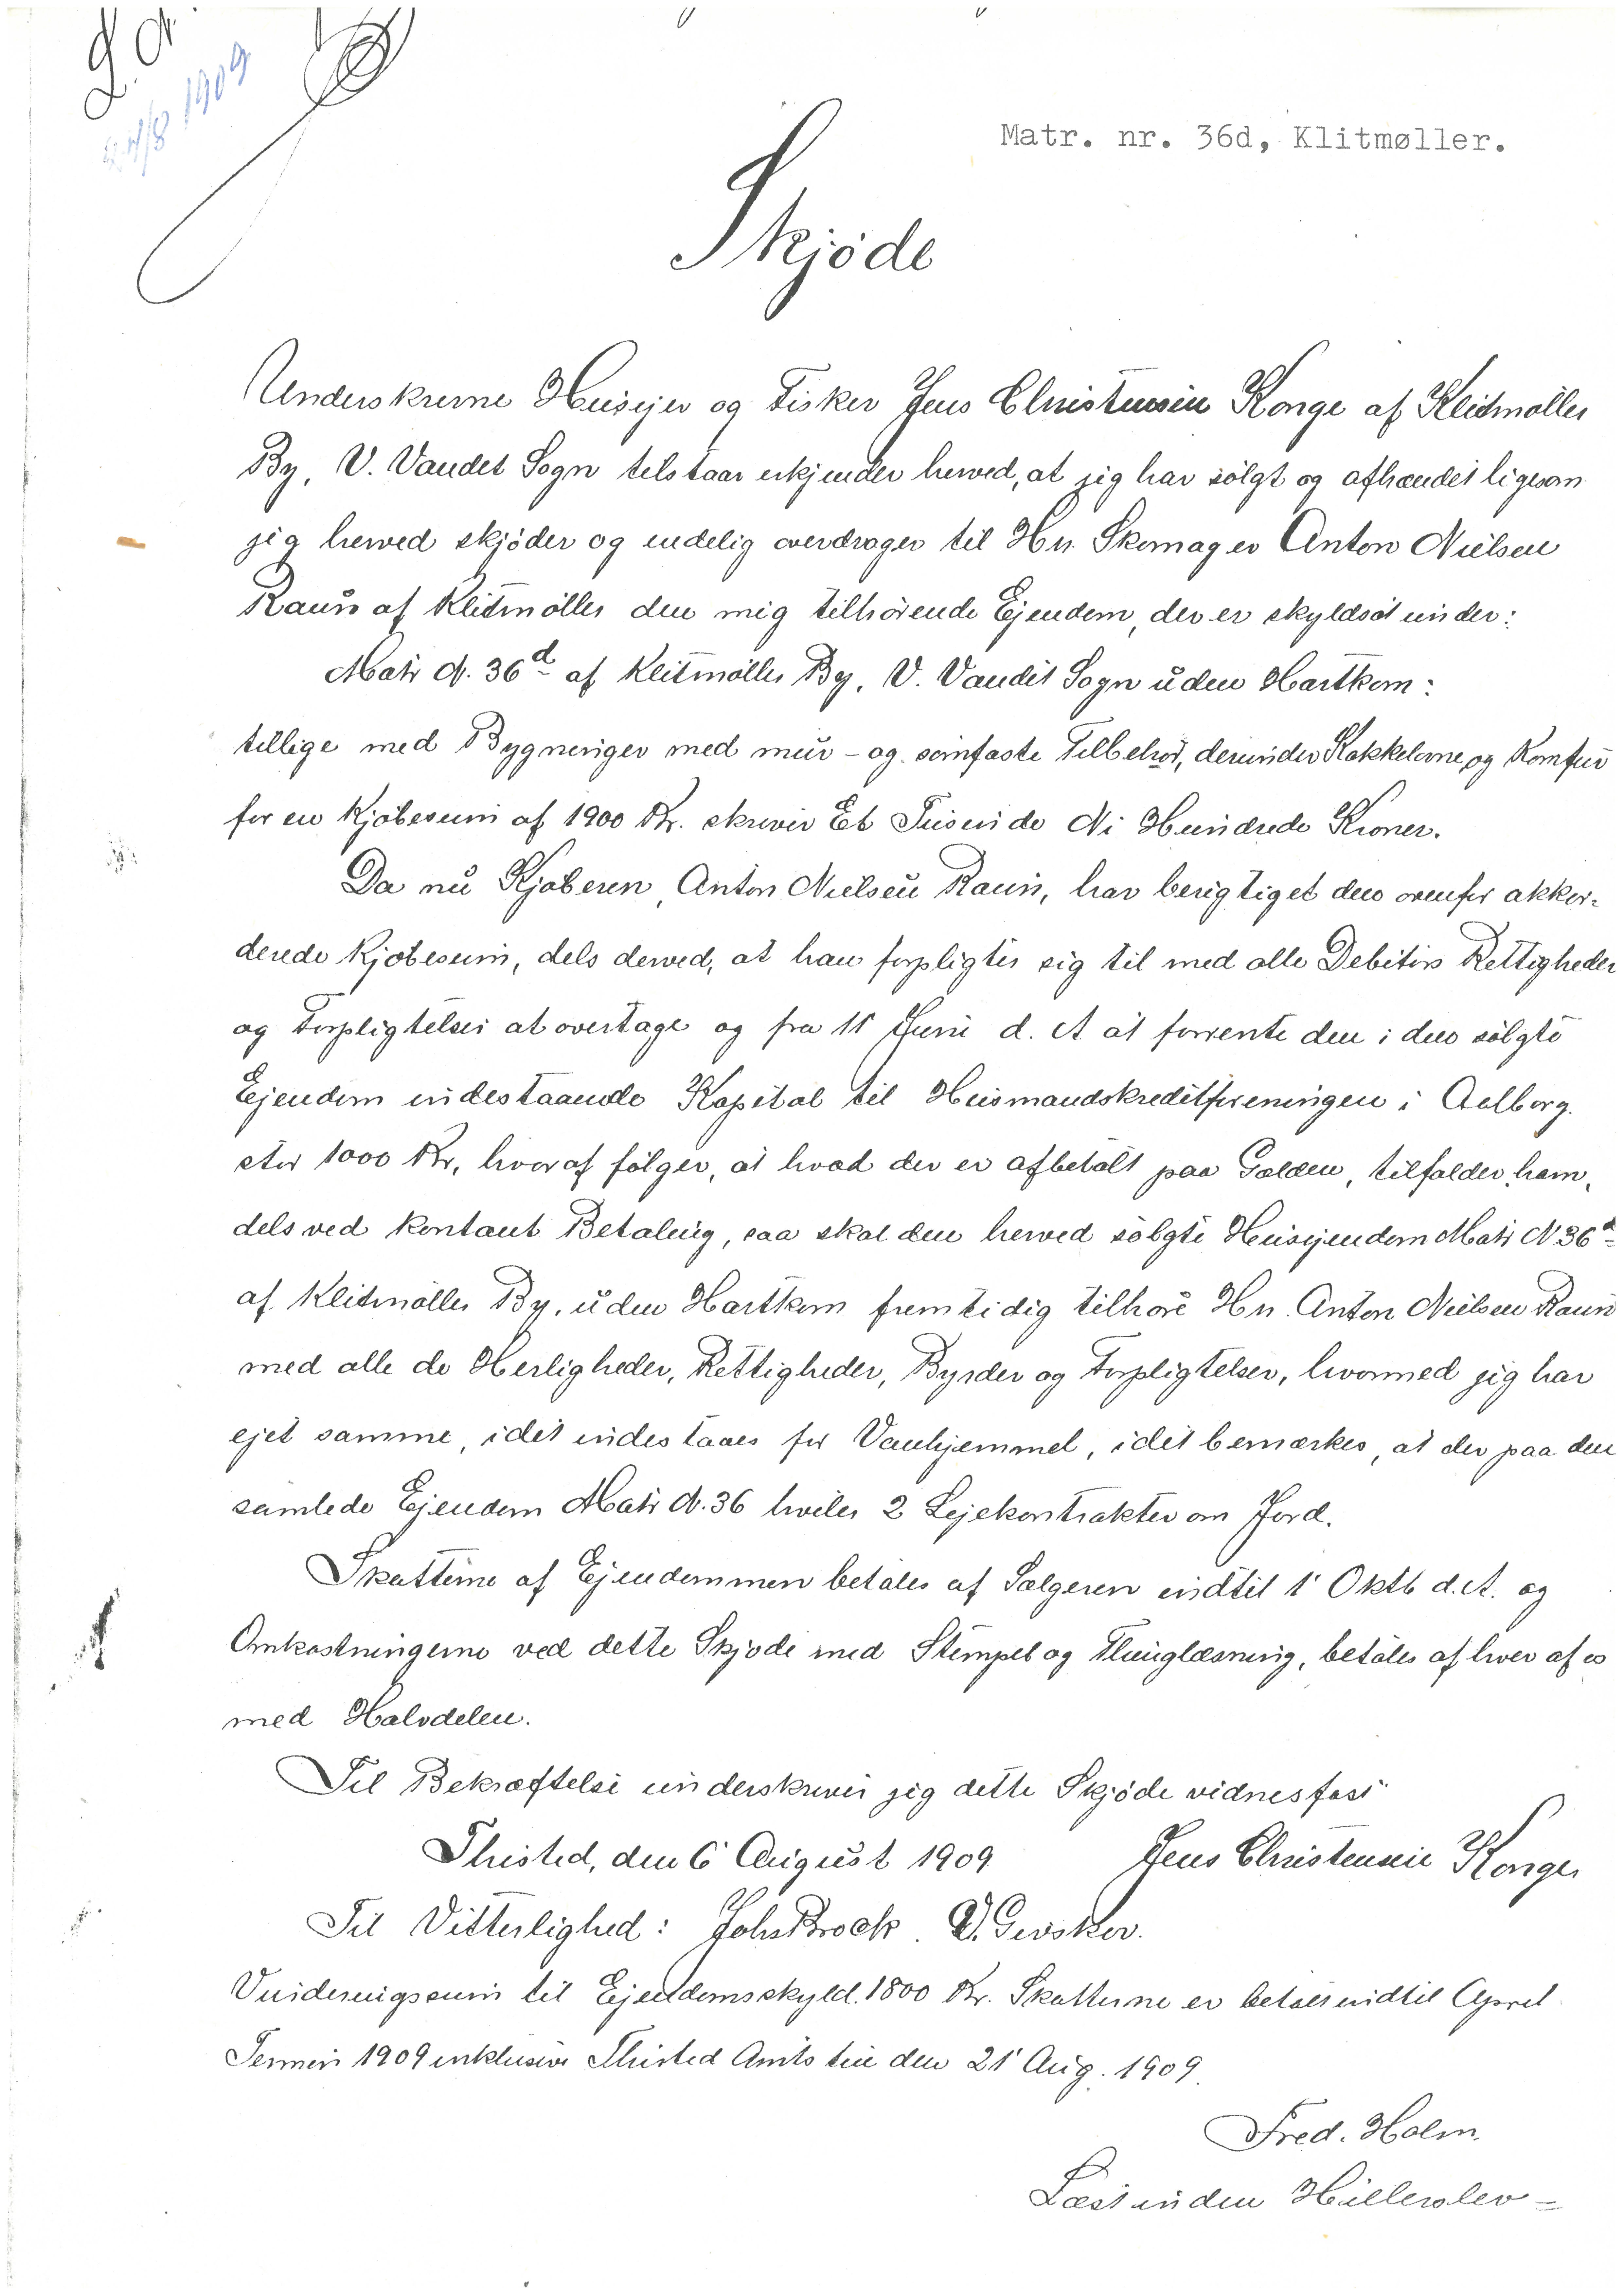 24/8 1909
Matr. nr. 36d, Klitmøller.
Skjöde
Underskrevne Husejer og Fisker Jens Christensen Konge af Klitmöller
By, V. Vandet Sogn tilstaar erkjender herved, at jeg har sölgt og afhændet ligesom
jeg herved skjöder og endelig overdrager til Hr. Skomager Anton Nielsen
Raun af Klitmöller den mig tilhörende Ejendom, der er skyldsat under:
Matr N. 36d af Klitmöller By, V. Vandet Sogn uden Hartkorn:
tillige med Bygninger med mur- og sömfaste Tilbehör, derunder Kakkelovne og Komfur
for en Kjöbesum af 1900 Kr. skriver Et Tusinde Ni Hundrede Kroner.
Da nu Kjöberen, Anton Nielsen Raun, har berigtiget den ovenfor akkor-
derede Kjöbesum, dels derved, at han forpligter sig til med alle Debitors Rettigheder
og Forpligtelser at overtage og fra 11 Juni d. A at forrente den i den solgte
Ejendom indestaaende Kapital til Husmandskreditforeningen i Aalborg.
stor 1000 Kr, hvoraf fölger, at hvad der er afbetalt paa Gælden, tilfalder ham,
dels ved kontant Betaling, saa skal den herved solgte Husejendom Matr N 36d
af Klitmöller By, uden Hartkorn fremtidig tilhöre Hr. Anton Nielsen Raun
med alle de Herligheder, Rettigheder, Byrder og Forpligtelser, hvormed jeg har
ejet samme, idet indestaaes for Vanhjemmel, idet bemærkes, at der paa den
samlede Ejendom Matr N. 36 hviler 2 Lejekontrakter om Jord.
Skatterne af Ejendommen betales af Sælgeren indtil 1' Oktb d. A. og
Omkostningerne ved dette Skjöde med Stempel og Thinglæsning, betales af hver af os
med Halvdelen.
Til Bekræftelse underskriver jeg dette Skjöde vidnesfast
Thisted, den 6' August 1909 Jens Christensen Konge
Til Vitterlighed: John Brock.
Vurderingssum til Ejendomsskyld. 1800 Kr. Skatterne er betalt indtil April
Termin 1909 inklusive Thisted Amtstue den 21' Aug. 1909.
Fred. Holm.
Læst inden Hillerslev –